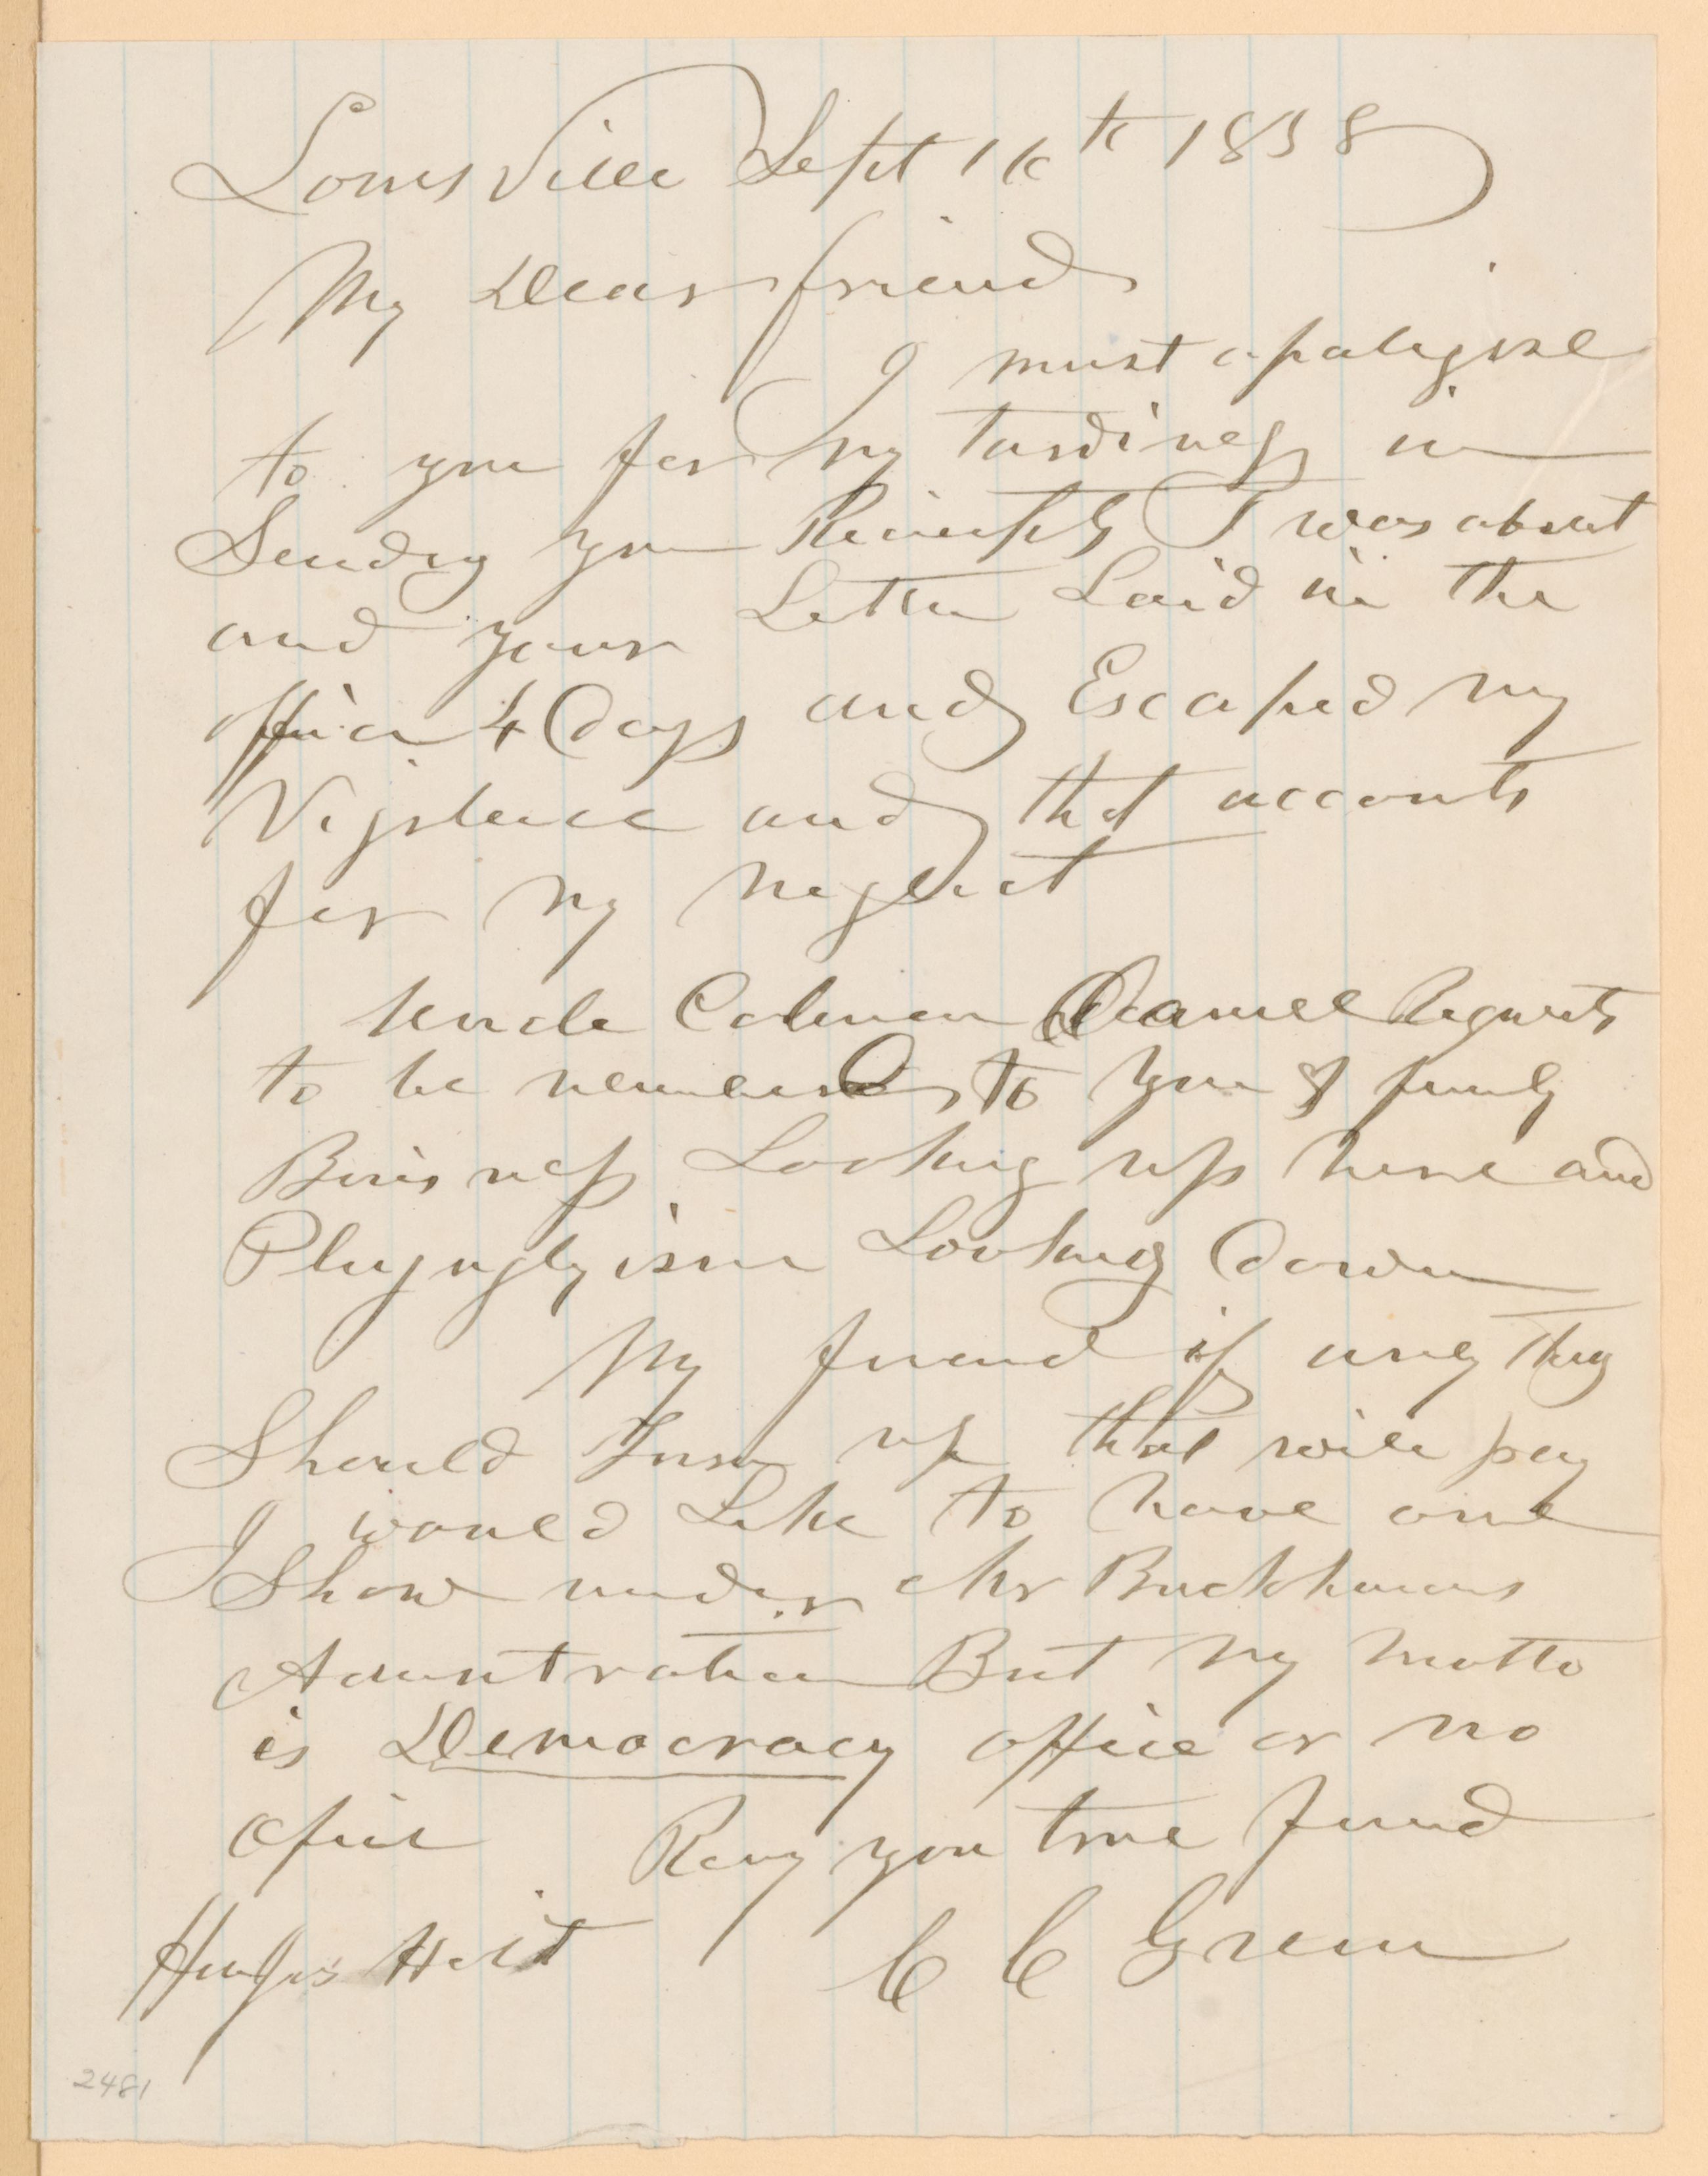 Louisville Sept 16th 1858
My Dear friend
I must apologise
to you for my tardiness in
Sending you Receipts I was absent
and your Letter Laid in the
office 4 Days and Escaped my
Vigilence and that accounts
for my neglect
Uncle Colman Daniel Requests
to be remembered to you & family
Business Looking up here and
Pluguglyism Looking Down
My friend if any thing
Should Turn up that will pay
I would Like to have one
Show under Mr Buckhanans
Admintration But my motto
is Democracy office or no
office Your true friend
C C Green
Holt
2481